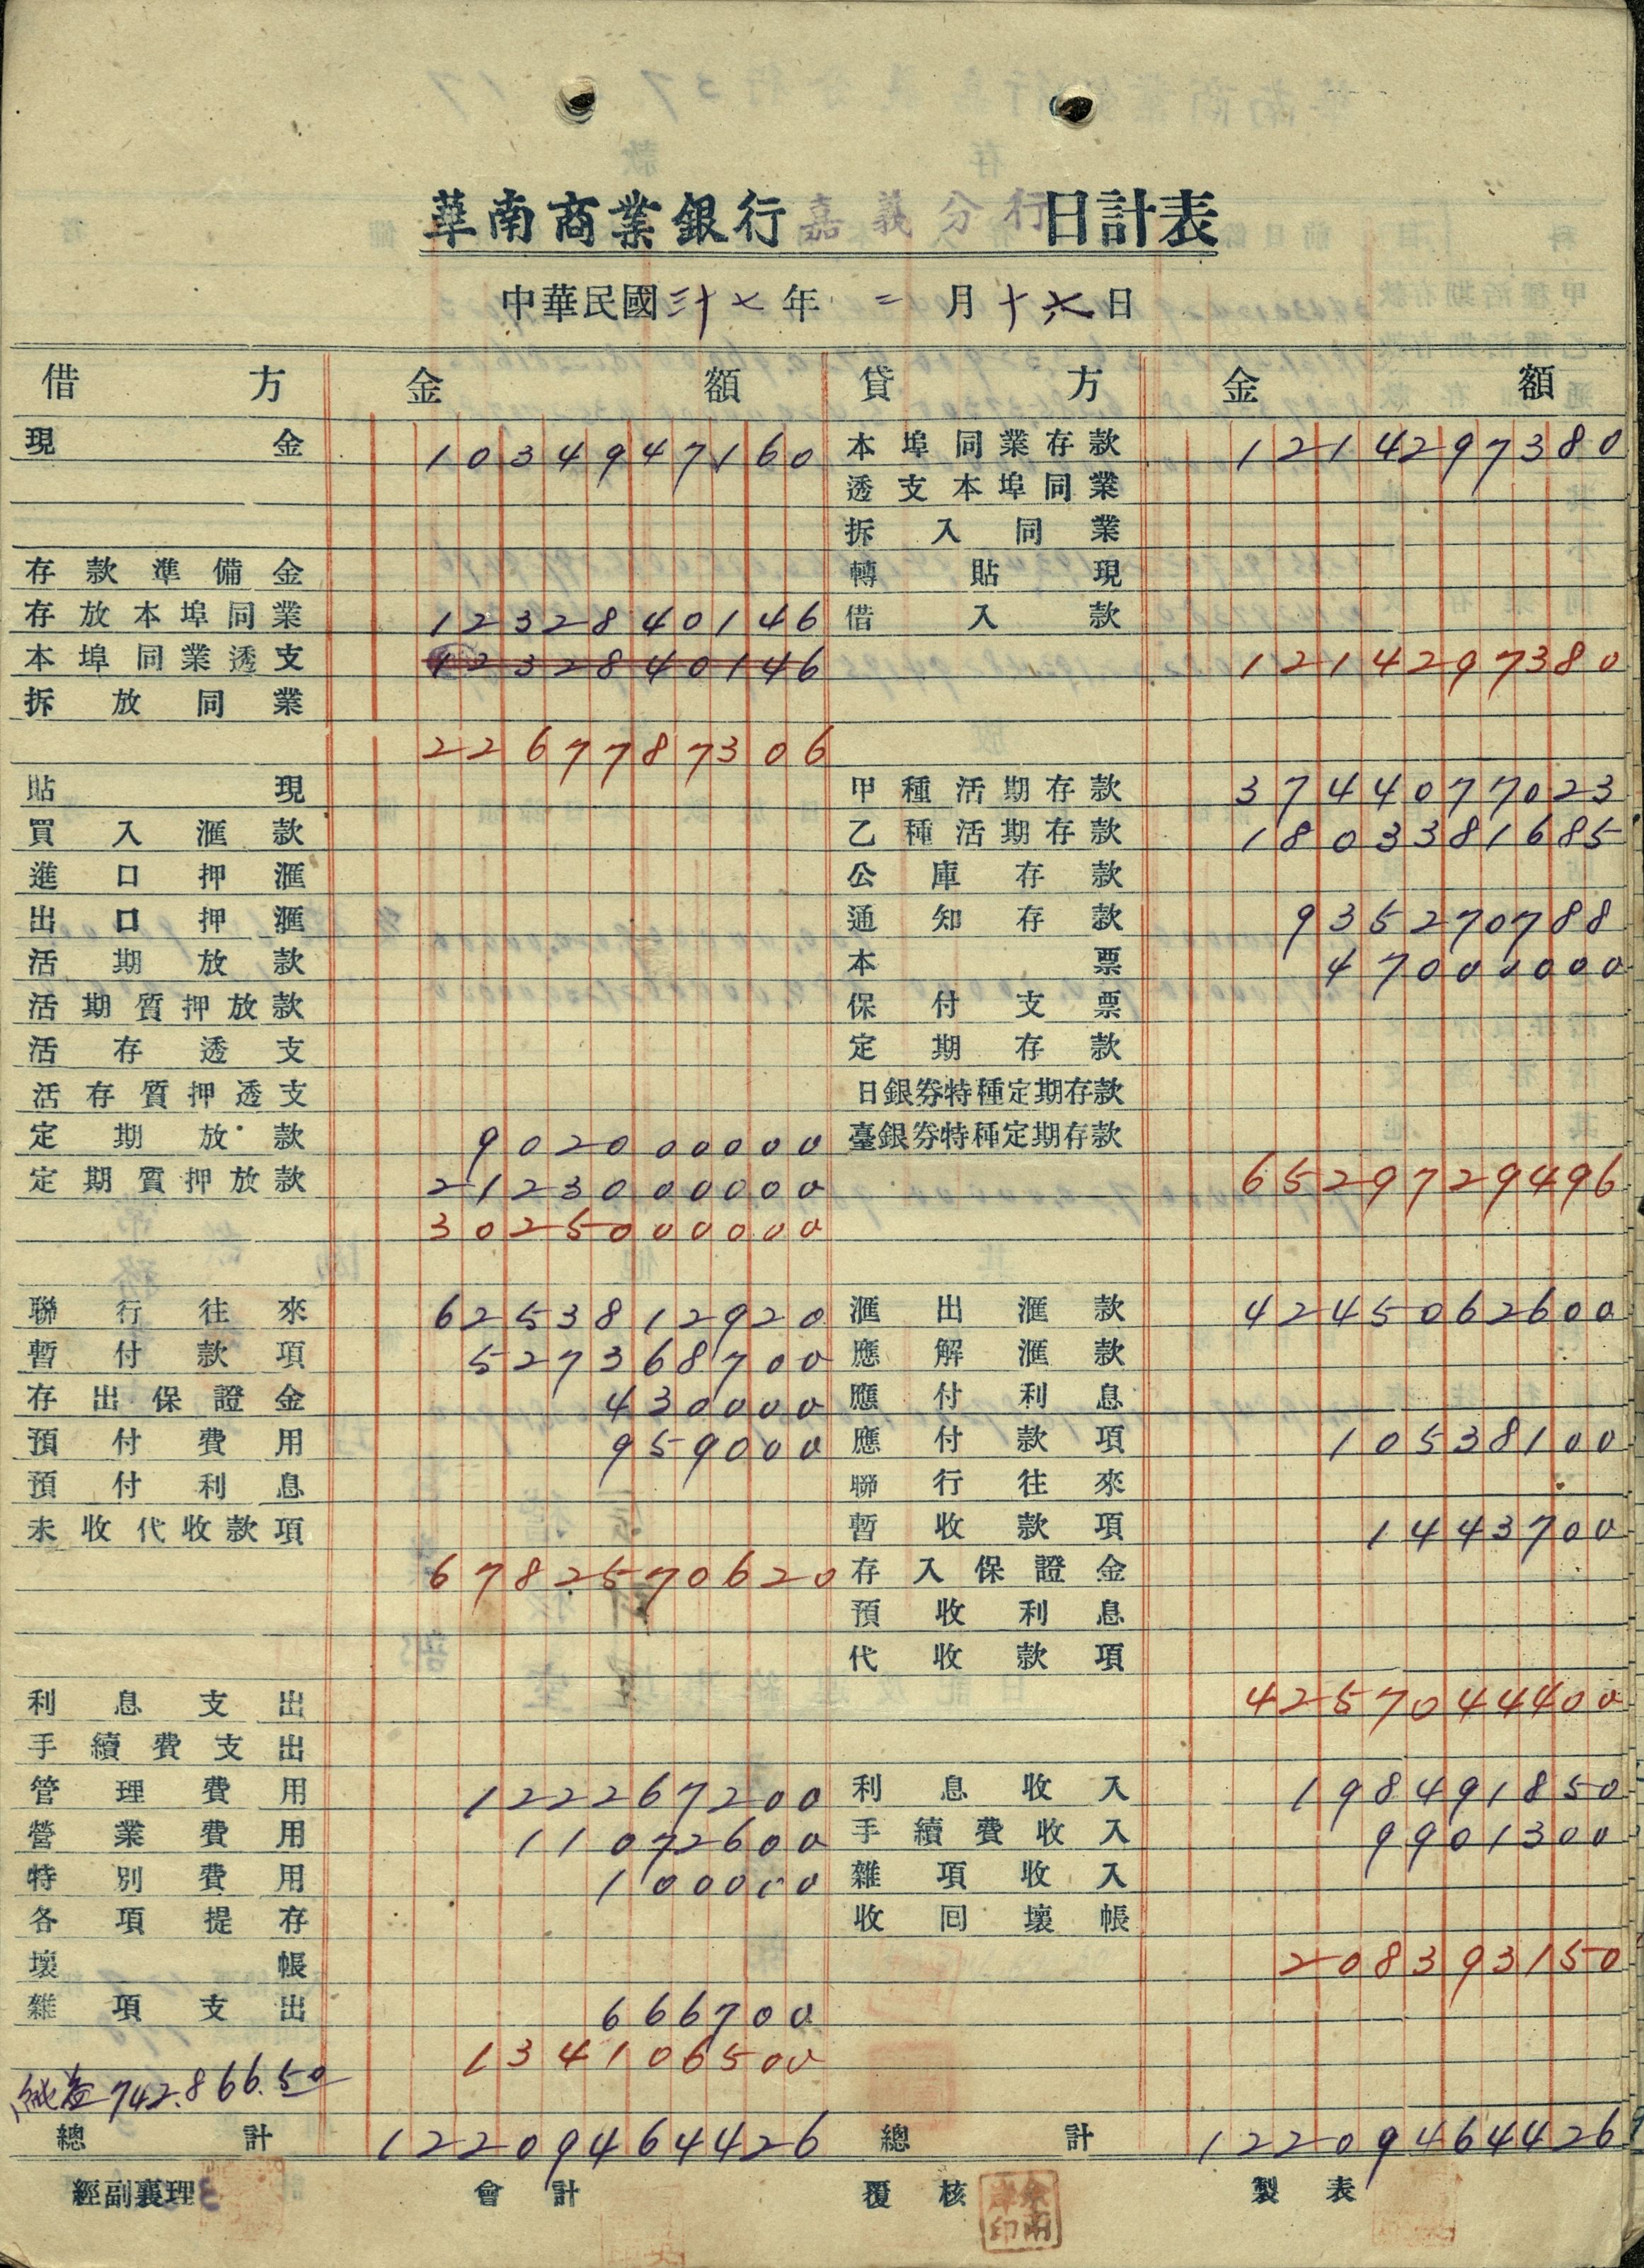 華南商業銀行嘉義分行日計表
中華民國三十七年二月十 日
借方 金額 貸方 金額
現金 1034947160 本埠同業存款 1214297380
透支本埠同業
拆入同業
存款準備金 轉貼現
存放本埠同業 1232840146 借入款
本埠同業透支 1232840146 1214297380
拆放同業
2267787306
貼現 甲種活期存款 3744077023
買入滙款 乙種活期存款 1803381685
進口押滙 公庫存款
出口押滙 通知存款 935270788
活期放款 本票 47000000
活期質押放款 保付支票
活存透支 定期存款
活存質押透支 日銀券特種定期存款
定期放款 902000000 臺銀券特種定期存款
定期質押放款 2123000000 6529729496
3025000000
聯行往來 6253812920 滙出滙款 4245062600
暫付款項 527368700 應解滙款
存出保證金 430000 應付利息
預付費用 959000 應付款項 10538100
預付利息 聯行往來
未收代收款項 暫收款項 1443700
6782570620 存入保證金
預收利息
代收款項
利息支出 4257044400
手續費支出
管理費用 122267200 利息收入 198491850
營業費用 11072600 手續費收入 9901300
特別費用 100000 雜項收入
各項提存 收回壞帳
壞帳 208393150
雜項支出 666700
134106500
純益 742.866.50
總計 12209464426 總計 12209464426
經副襄理 會計 覆核 製表